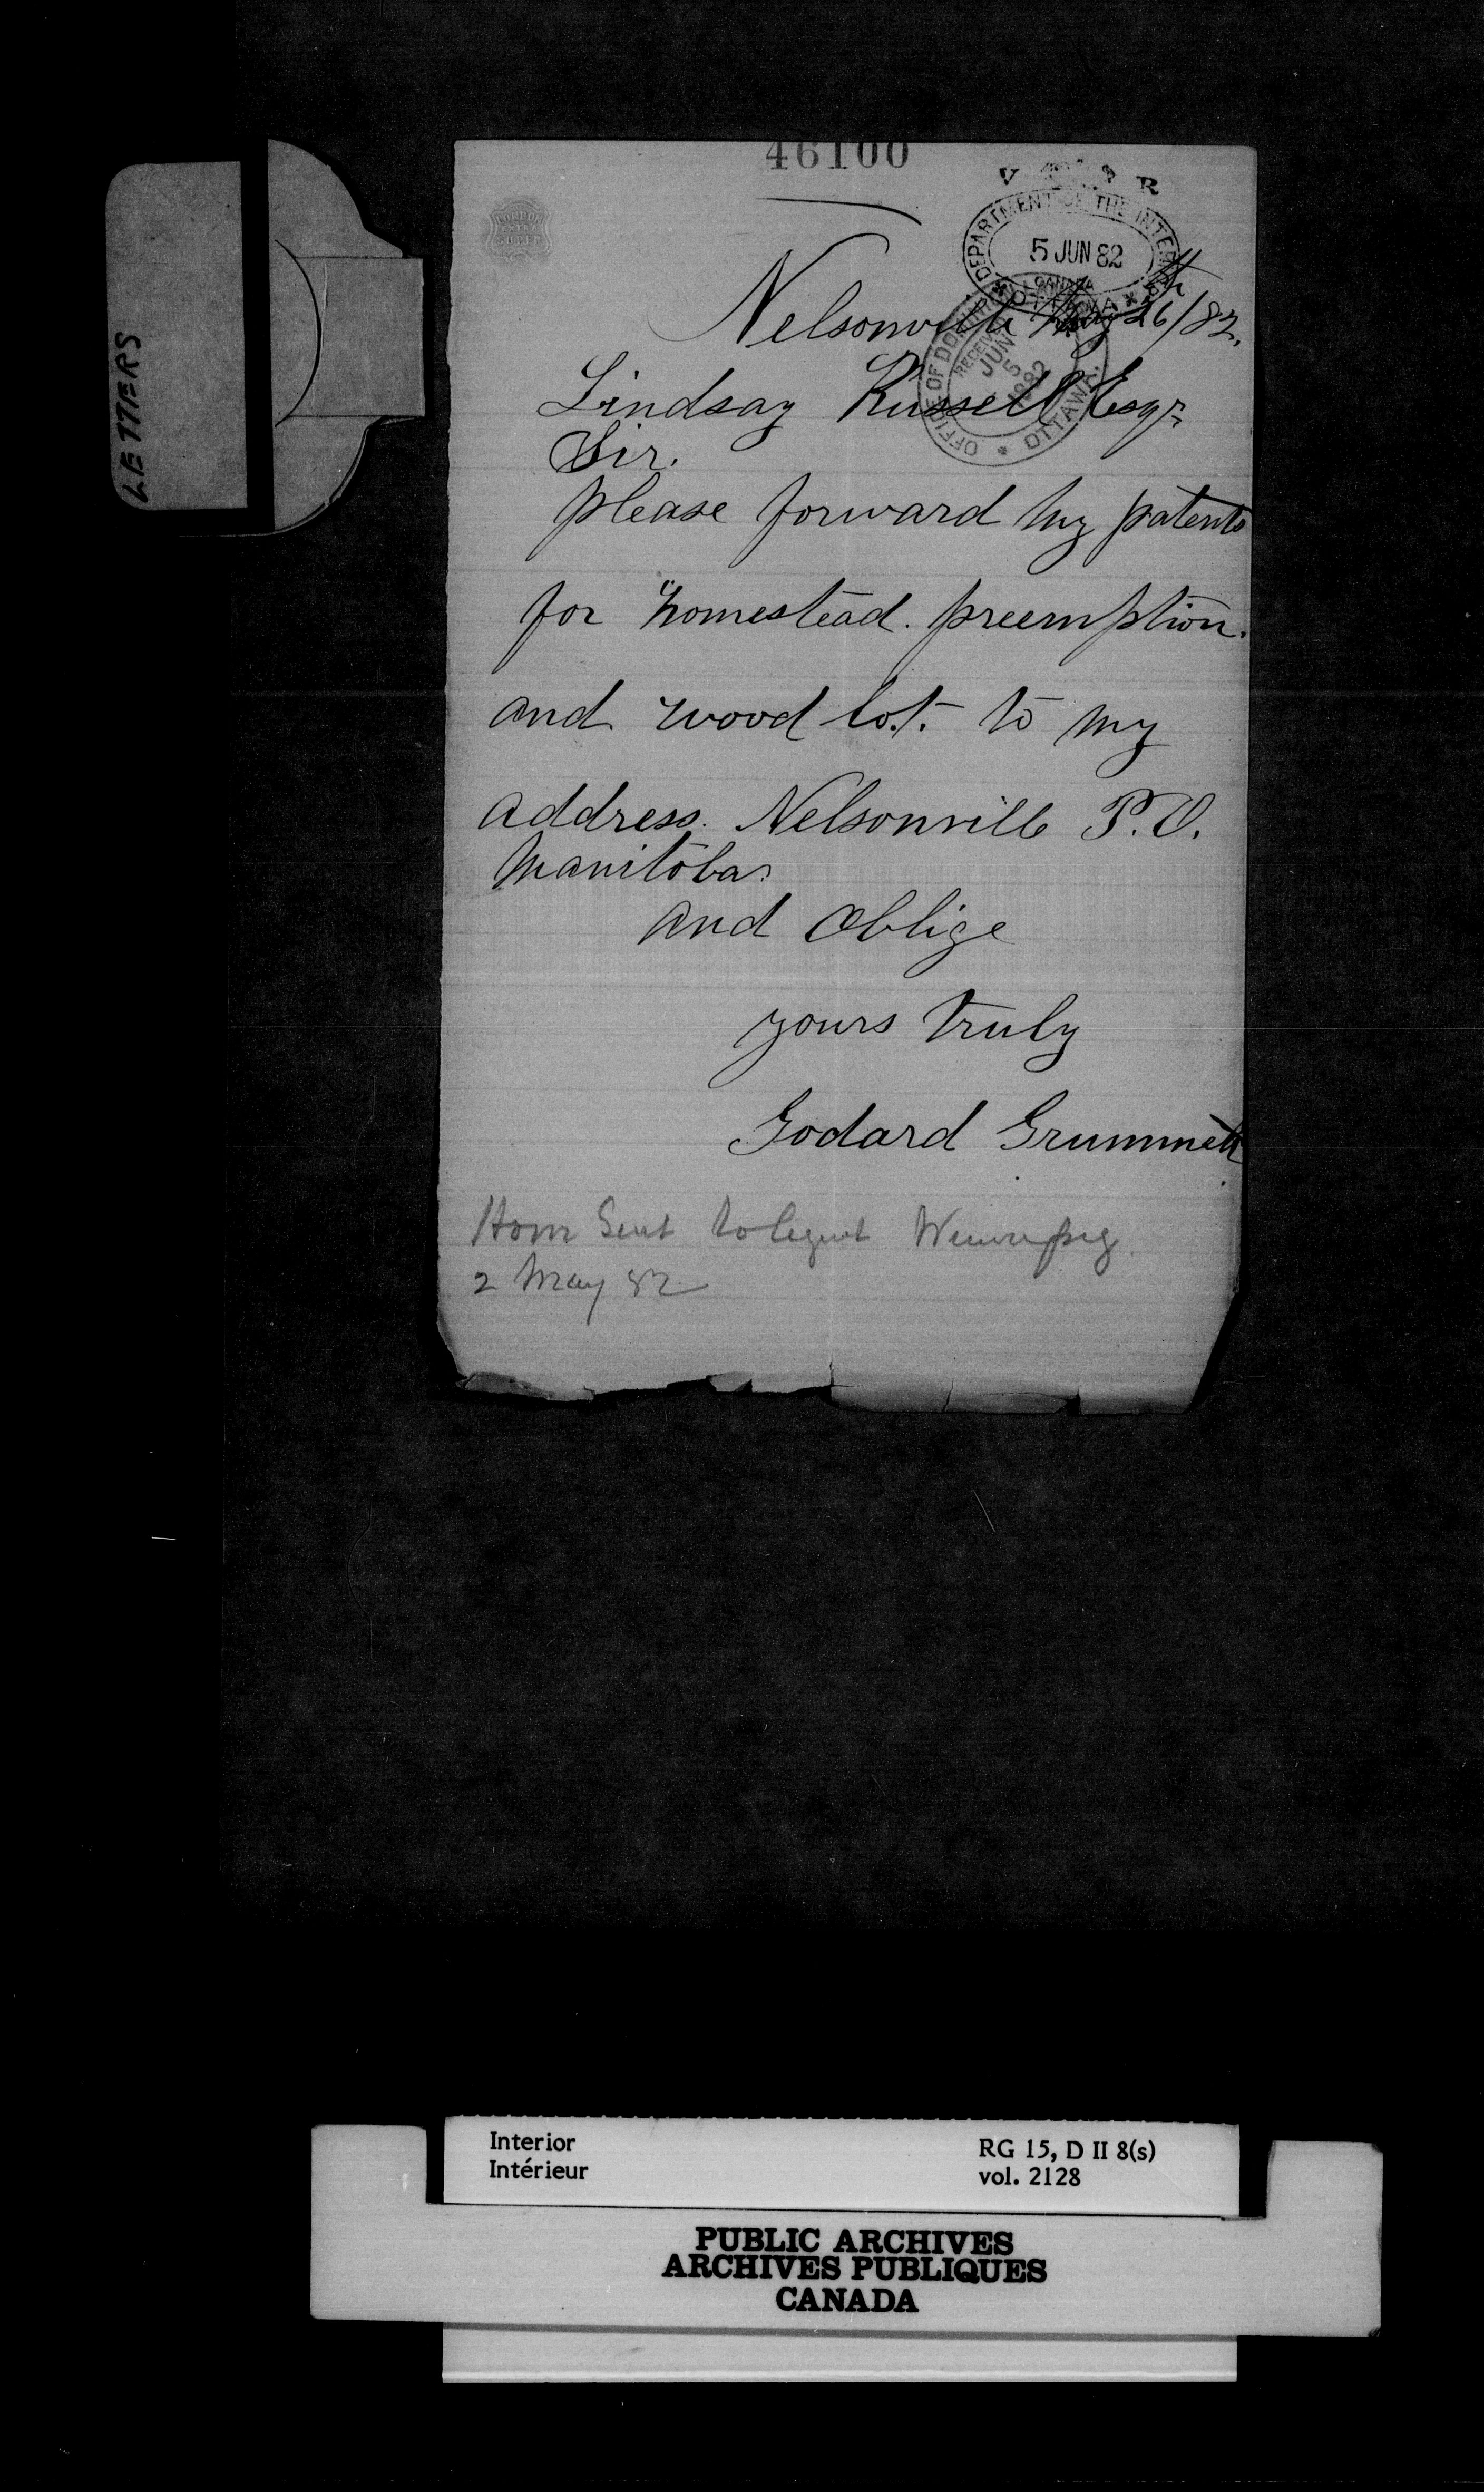 LETTERS
46100
V R
DEPARTMENT OF THE INTERIOR
5 JUN 82
CANADA
OTTAWA
Nelsonville May 26th/82.
OFFICE OF DOMINION
RECEIVED
JUN
5
1882
OTTAWA.
Lindsay Russell Esqr
Sir.
please forward my patents
for homestead. preemption.
and wood lot. to my
address. Nelsonville P.O.
Manitoba.
and Oblige
yours truly
Godard Grummett
Hom Sent to Agent Winnipeg.
2 May 82
Interior
Intérieur
RG 15, D II 8(s)
vol. 2128
PUBLIC ARCHIVES
ARCHIVES PUBLIQUES
CANADA